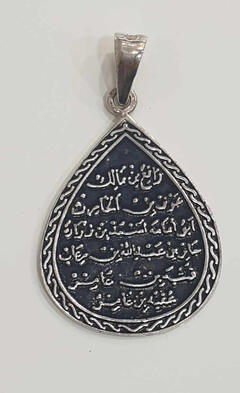 رافع بن مالك
عوف بن الحارث
أبي أمامة أسعد بن زرارة
جابر بن عبد الله بن رئاب
قطبة بن عامر
عقبة بن عامر